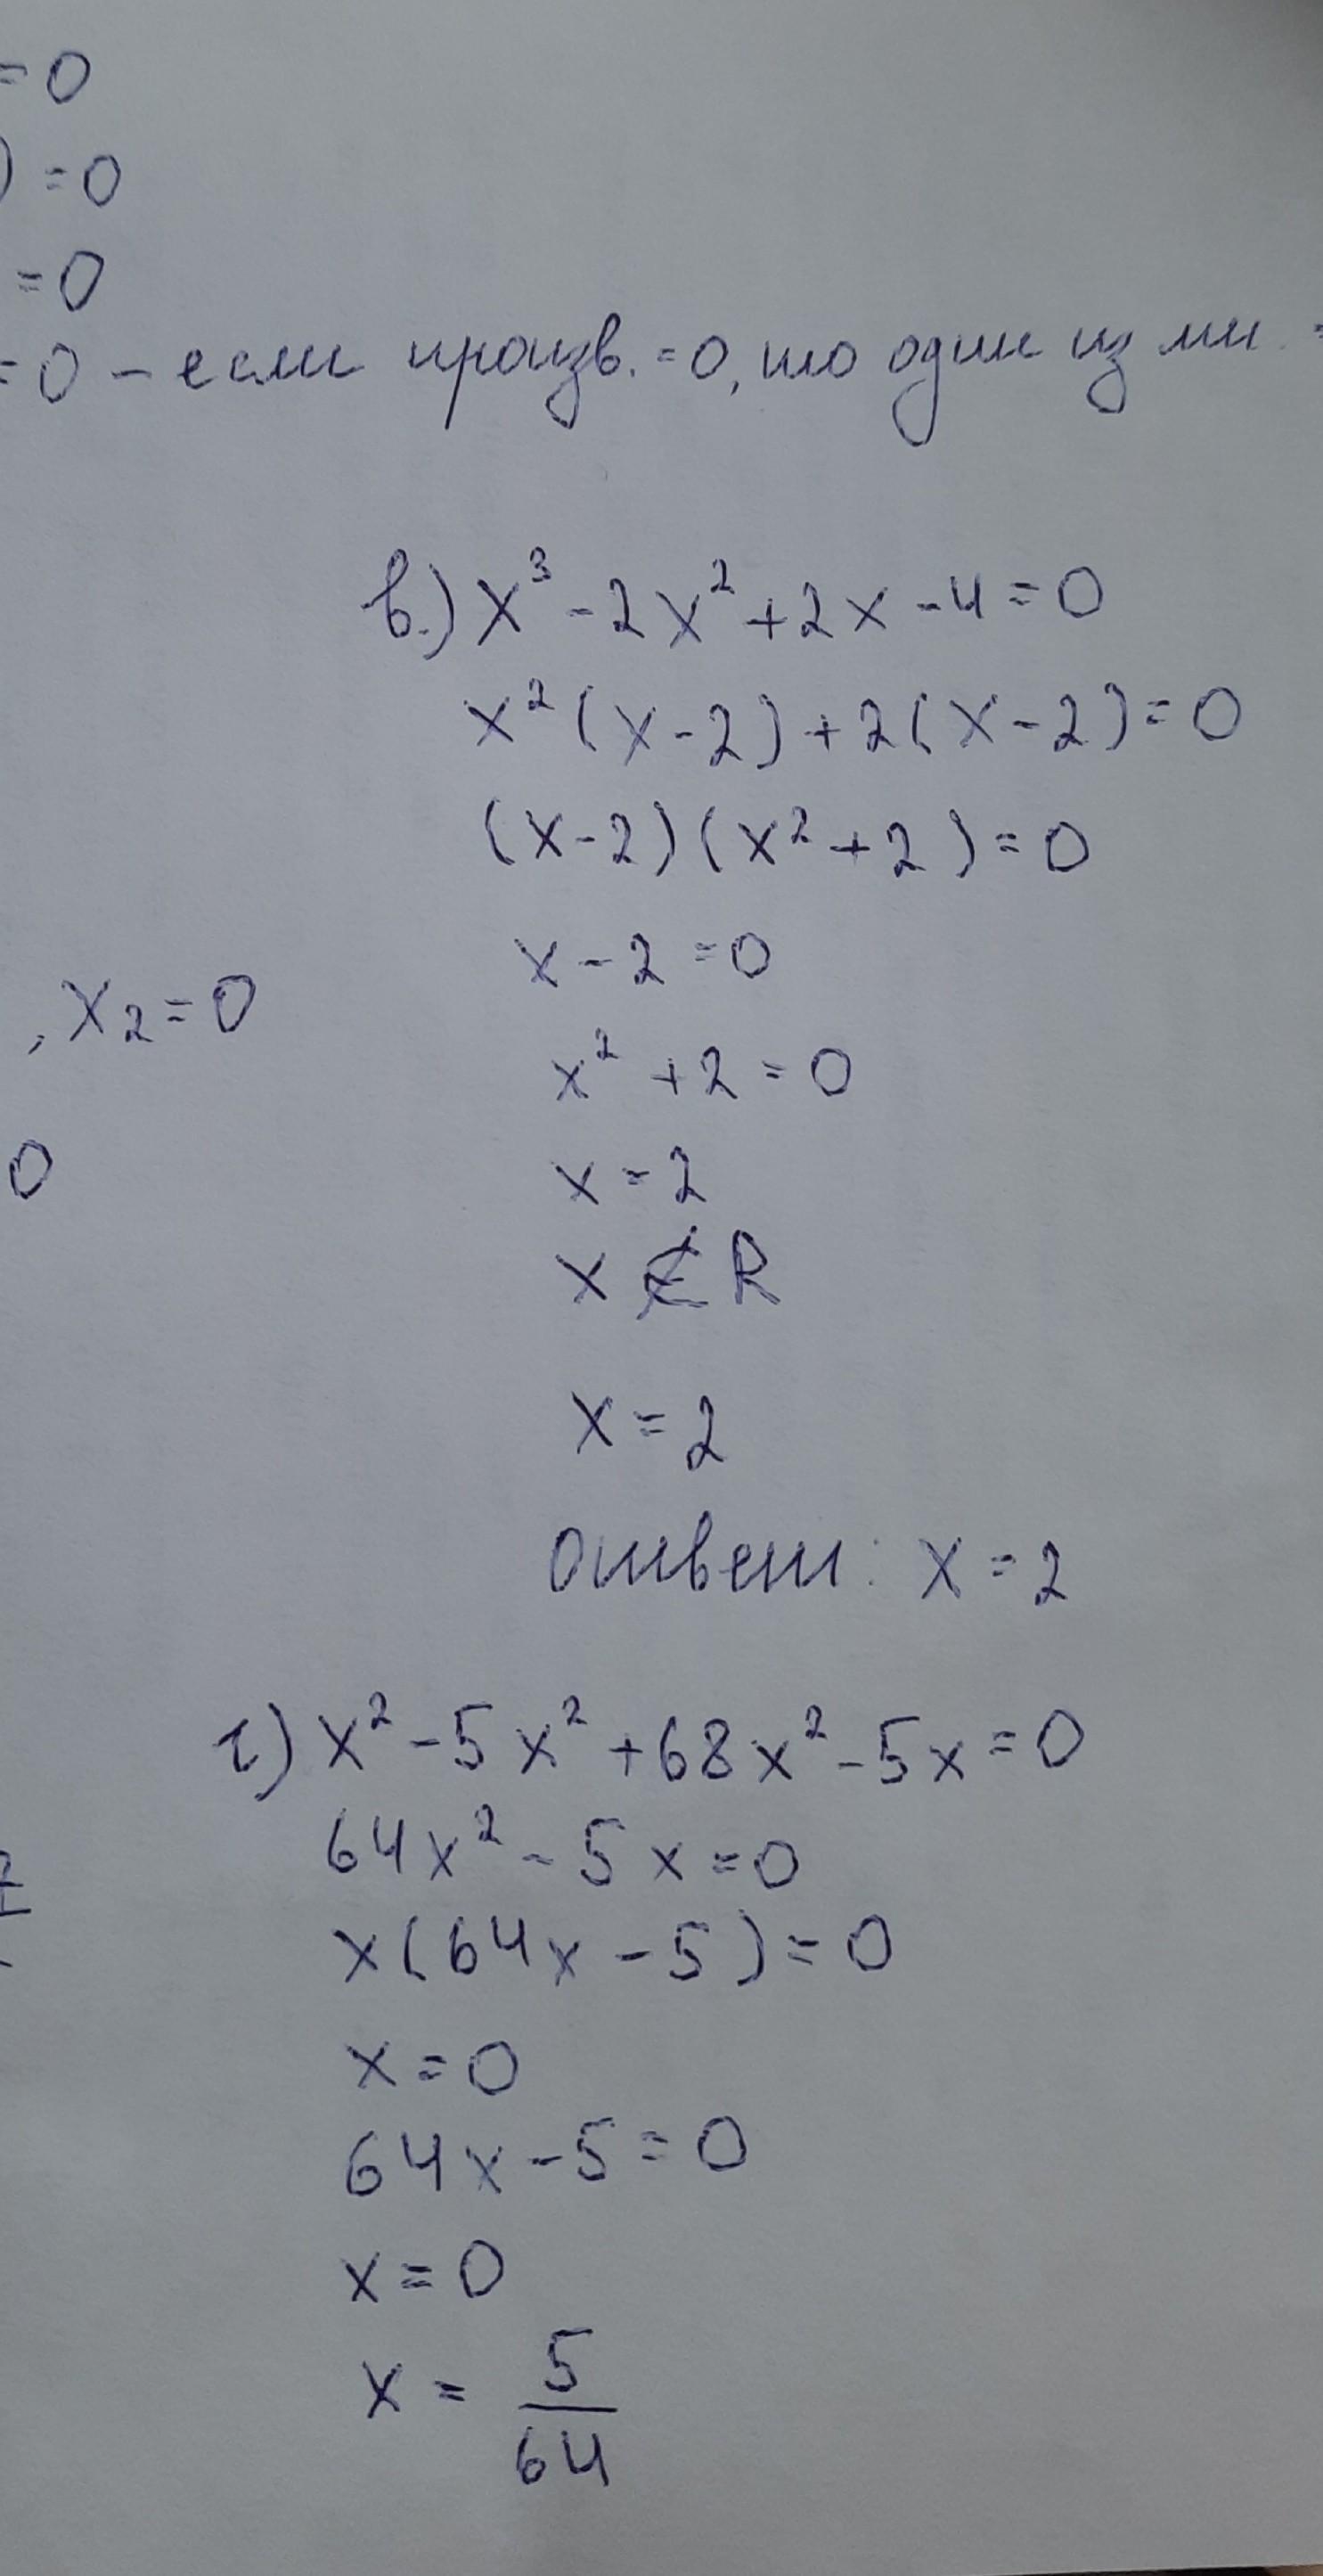 =0
) =0
=0
=0 – если произв. =0, то один из мн. =
в.) x³ - 2x² + 2x - 4 = 0
x² (x - 2) + 2(x - 2) = 0
(x - 2) (x² + 2) = 0
x - 2 = 0
, x₂ = 0
x² + 2 = 0
0
x = 2
x ∉ R
x = 2
Ответ: x = 2
г) x² - 5x² + 68x² - 5x = 0
64x² - 5x = 0
x(64x - 5) = 0
x = 0
64x - 5 = 0
x = 0
x = 5/64